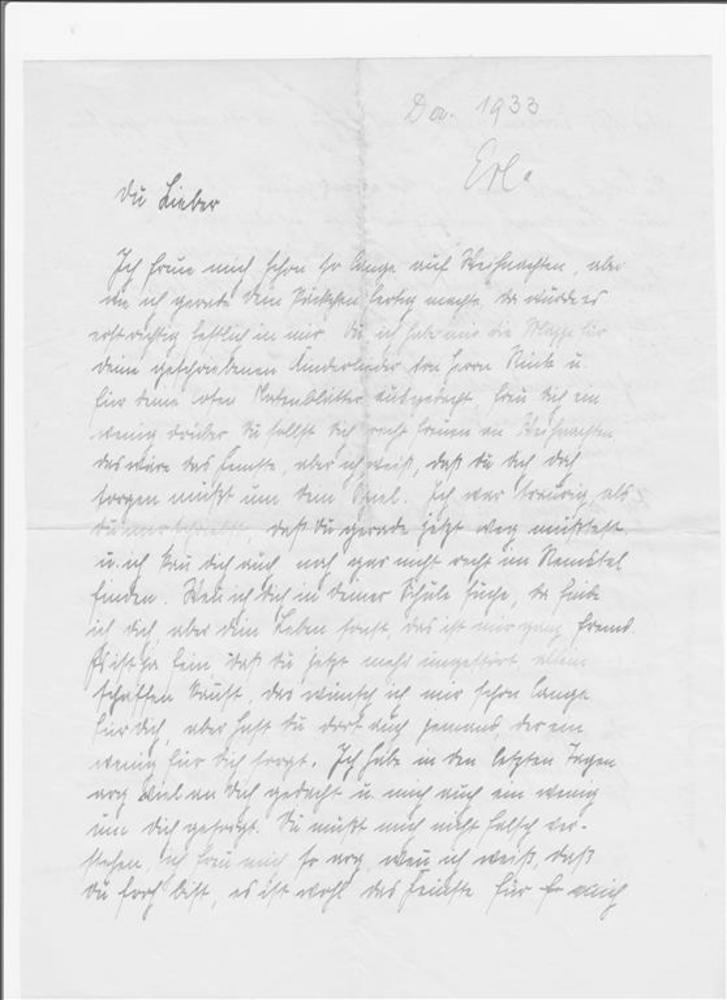 Da. 1933
Erl.
Du Lieber
Ich freue mich schon so lange auf Weihnachten, aber
wie ich gerade Dein Päckchen fertig machte, da wurde es
erst richtig festlich in mir. Du, ich habe mir die Mappe für
Deine geschriebenen Kinderlieder von Herrn u.
für Deine Notenblätter ausgedacht, freu Dich ein
wenig drüber. Du sollst Dich recht freuen an Weihnachten
das wäre das Feinste, aber ich weiß, daß Du Dich doch
sorgen mußt um Dein. Ich war traurig, als
Du mir schriebst, daß Du gerade jetzt weg müßtest
u. ich kan Dich auch noch gar nicht recht im Remstal
finden. Wen ich Dich in Deiner Schule suche, da finde
ich Dich, aber Dein Leben sonst, das ist mir ganz fremd.
Es ist ja fein daß Du jetzt mehr ungestört allein
schaffen kanst, das wünsch ich mir schon lange
für Dich, aber hast Du dort auch jemand, der ein
wenig für Dich sorgt. Ich habe in den letzten Tagen
arg viel an Dich gedacht u. mich auch ein wenig
um Dich gesorgt. Du mußt mich nicht falsch ver-
stehen, ich freu mich so arg, wen ich weiß, daß
Du froh bist, es ist wohl das Feinste für mich